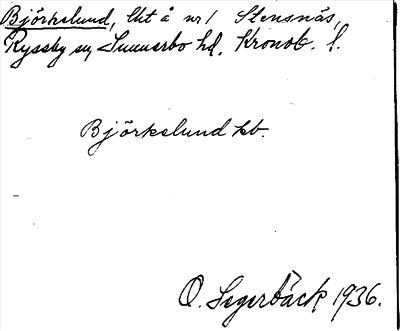 Björkelund, lht å nr 1 Stensnäs,
Ryssby sn, Sunnerbo hd, Kronob. l.
Björkelund hb.
O. Segerbäck 1936.